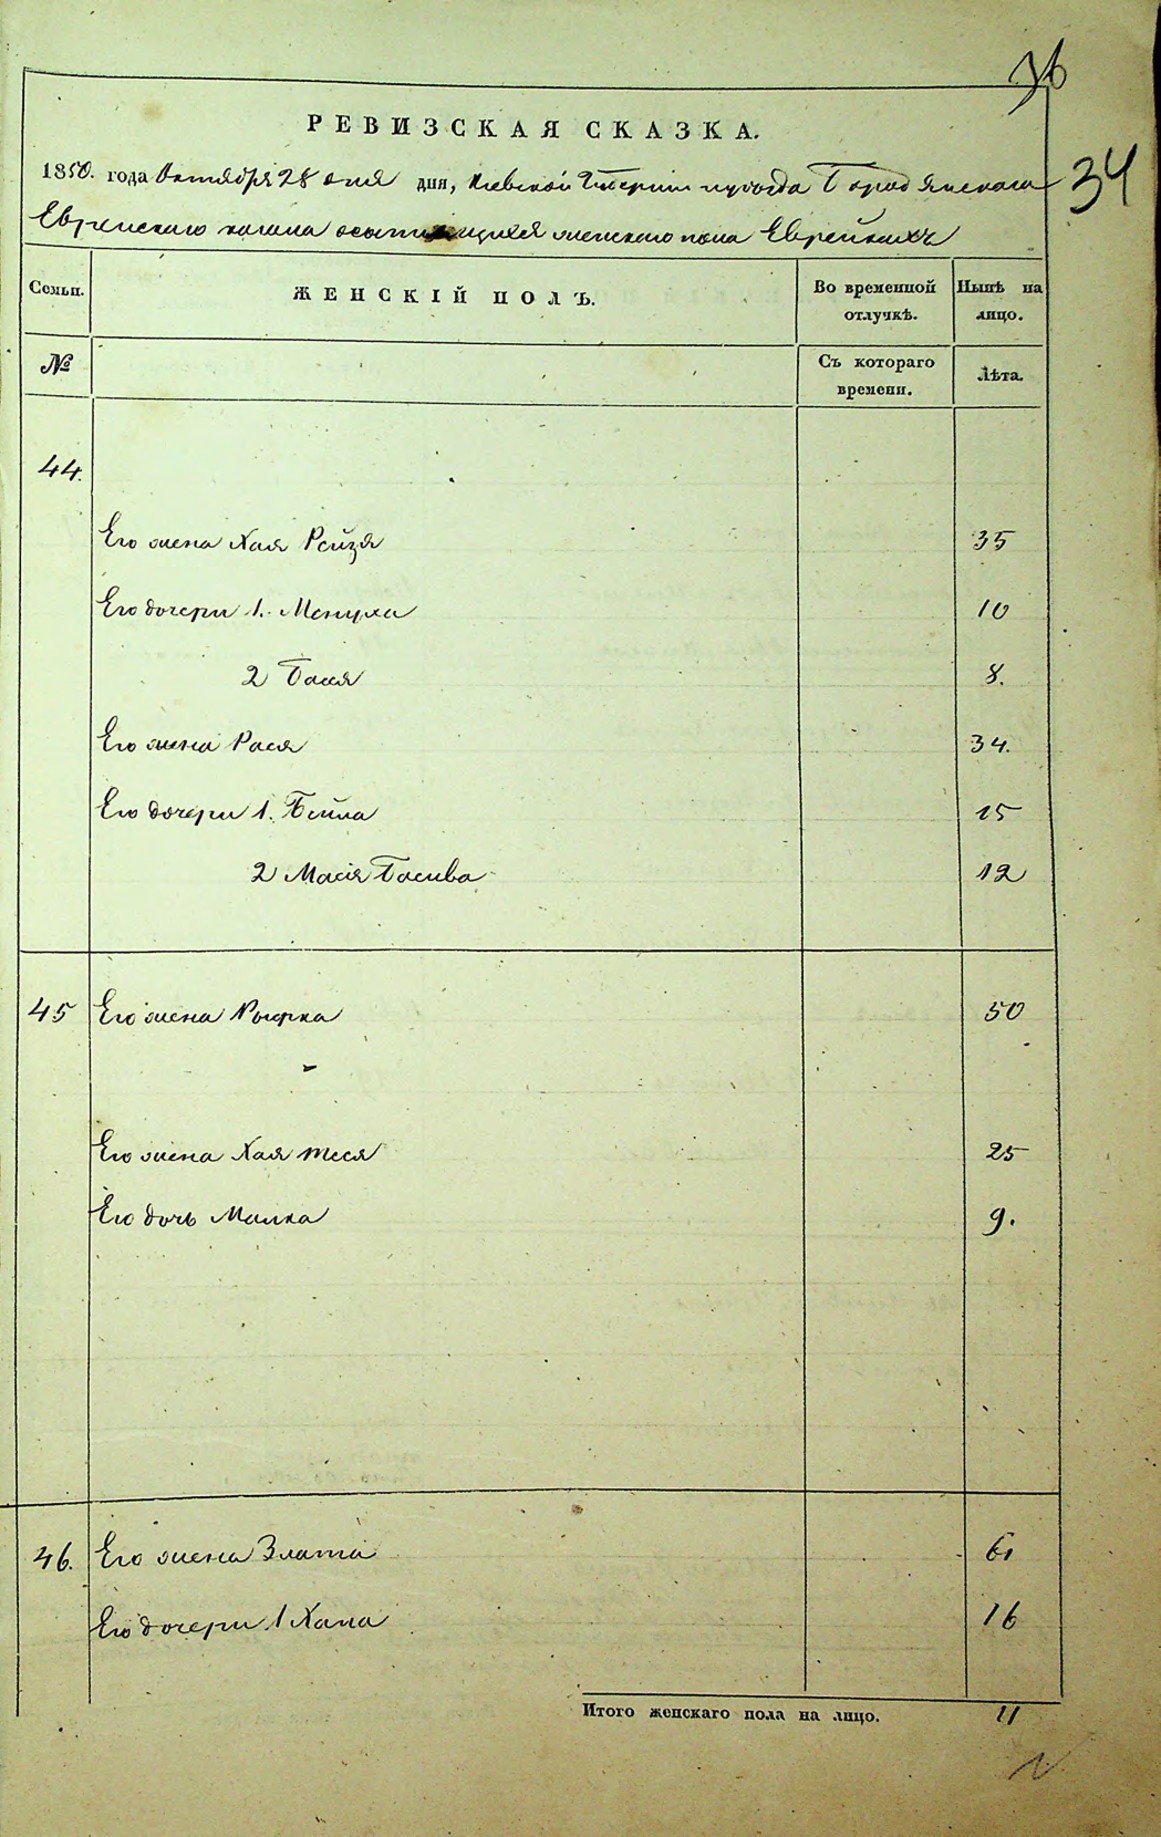 36
РЕВИЗСКАЯ СКАЗКА.
34
1850. года Октября 28 дня дня, Киевской Губернии Городянскаго
Еврейскаго кагала женскаго пола Еврейкахъ
Семьи.
ЖЕНСКІЙ ПОЛЪ.
Во временной отлучкѣ.
Нынѣ на лицо.
№
Съ котораго времени.
Лѣта.
44.
Его жена Хая Рейзя 35
Его дочери 1. Менуха 10
2 Бася 8.
Его жена Рася 34.
Его дочери 1. Бейла 15
2 Масія Басива 12
45 Его жена 50
Его жена Хая Теся 25
Его дочь Малка 9.
46. Его жена Злата 61
Его дочери 1 Хана 16
Итого женскаго пола на лицо. 11